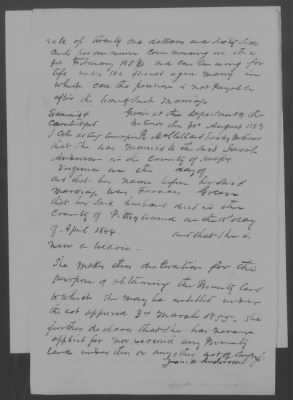 rate of twenty one dollars and sixty six
cents per annum commencing on the
3rd February 1853 and continuing for
life unless she should again marry in
which case the pension is not payable
after the time of such marriage
Given at the Department the
30th August 1853
that she was married to the said
Anderson in the County of Halifax
Virginia on the day of
and that her name before her said
marriage was Frances
that her said husband died in the
County of Pittsylvania on the 15 day
of April 1844. and that she is
now a widow.
She makes this declaration for the
purpose of obtaining the Bounty land
to which she may be entitled under
the act approved 3rd March 1855. She
further declares that she has never
applied for nor received any Bounty
Land under this or any other act of
Anderson